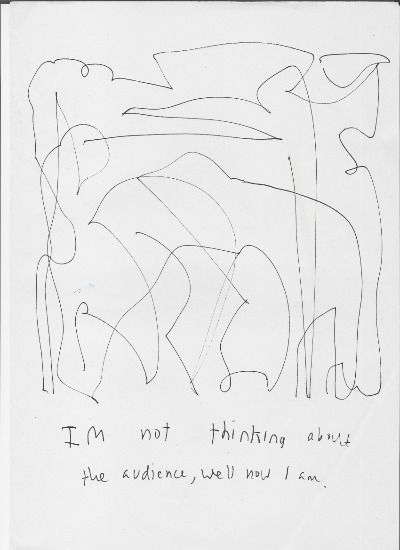 IM not thinking about
the audience, well now I am.